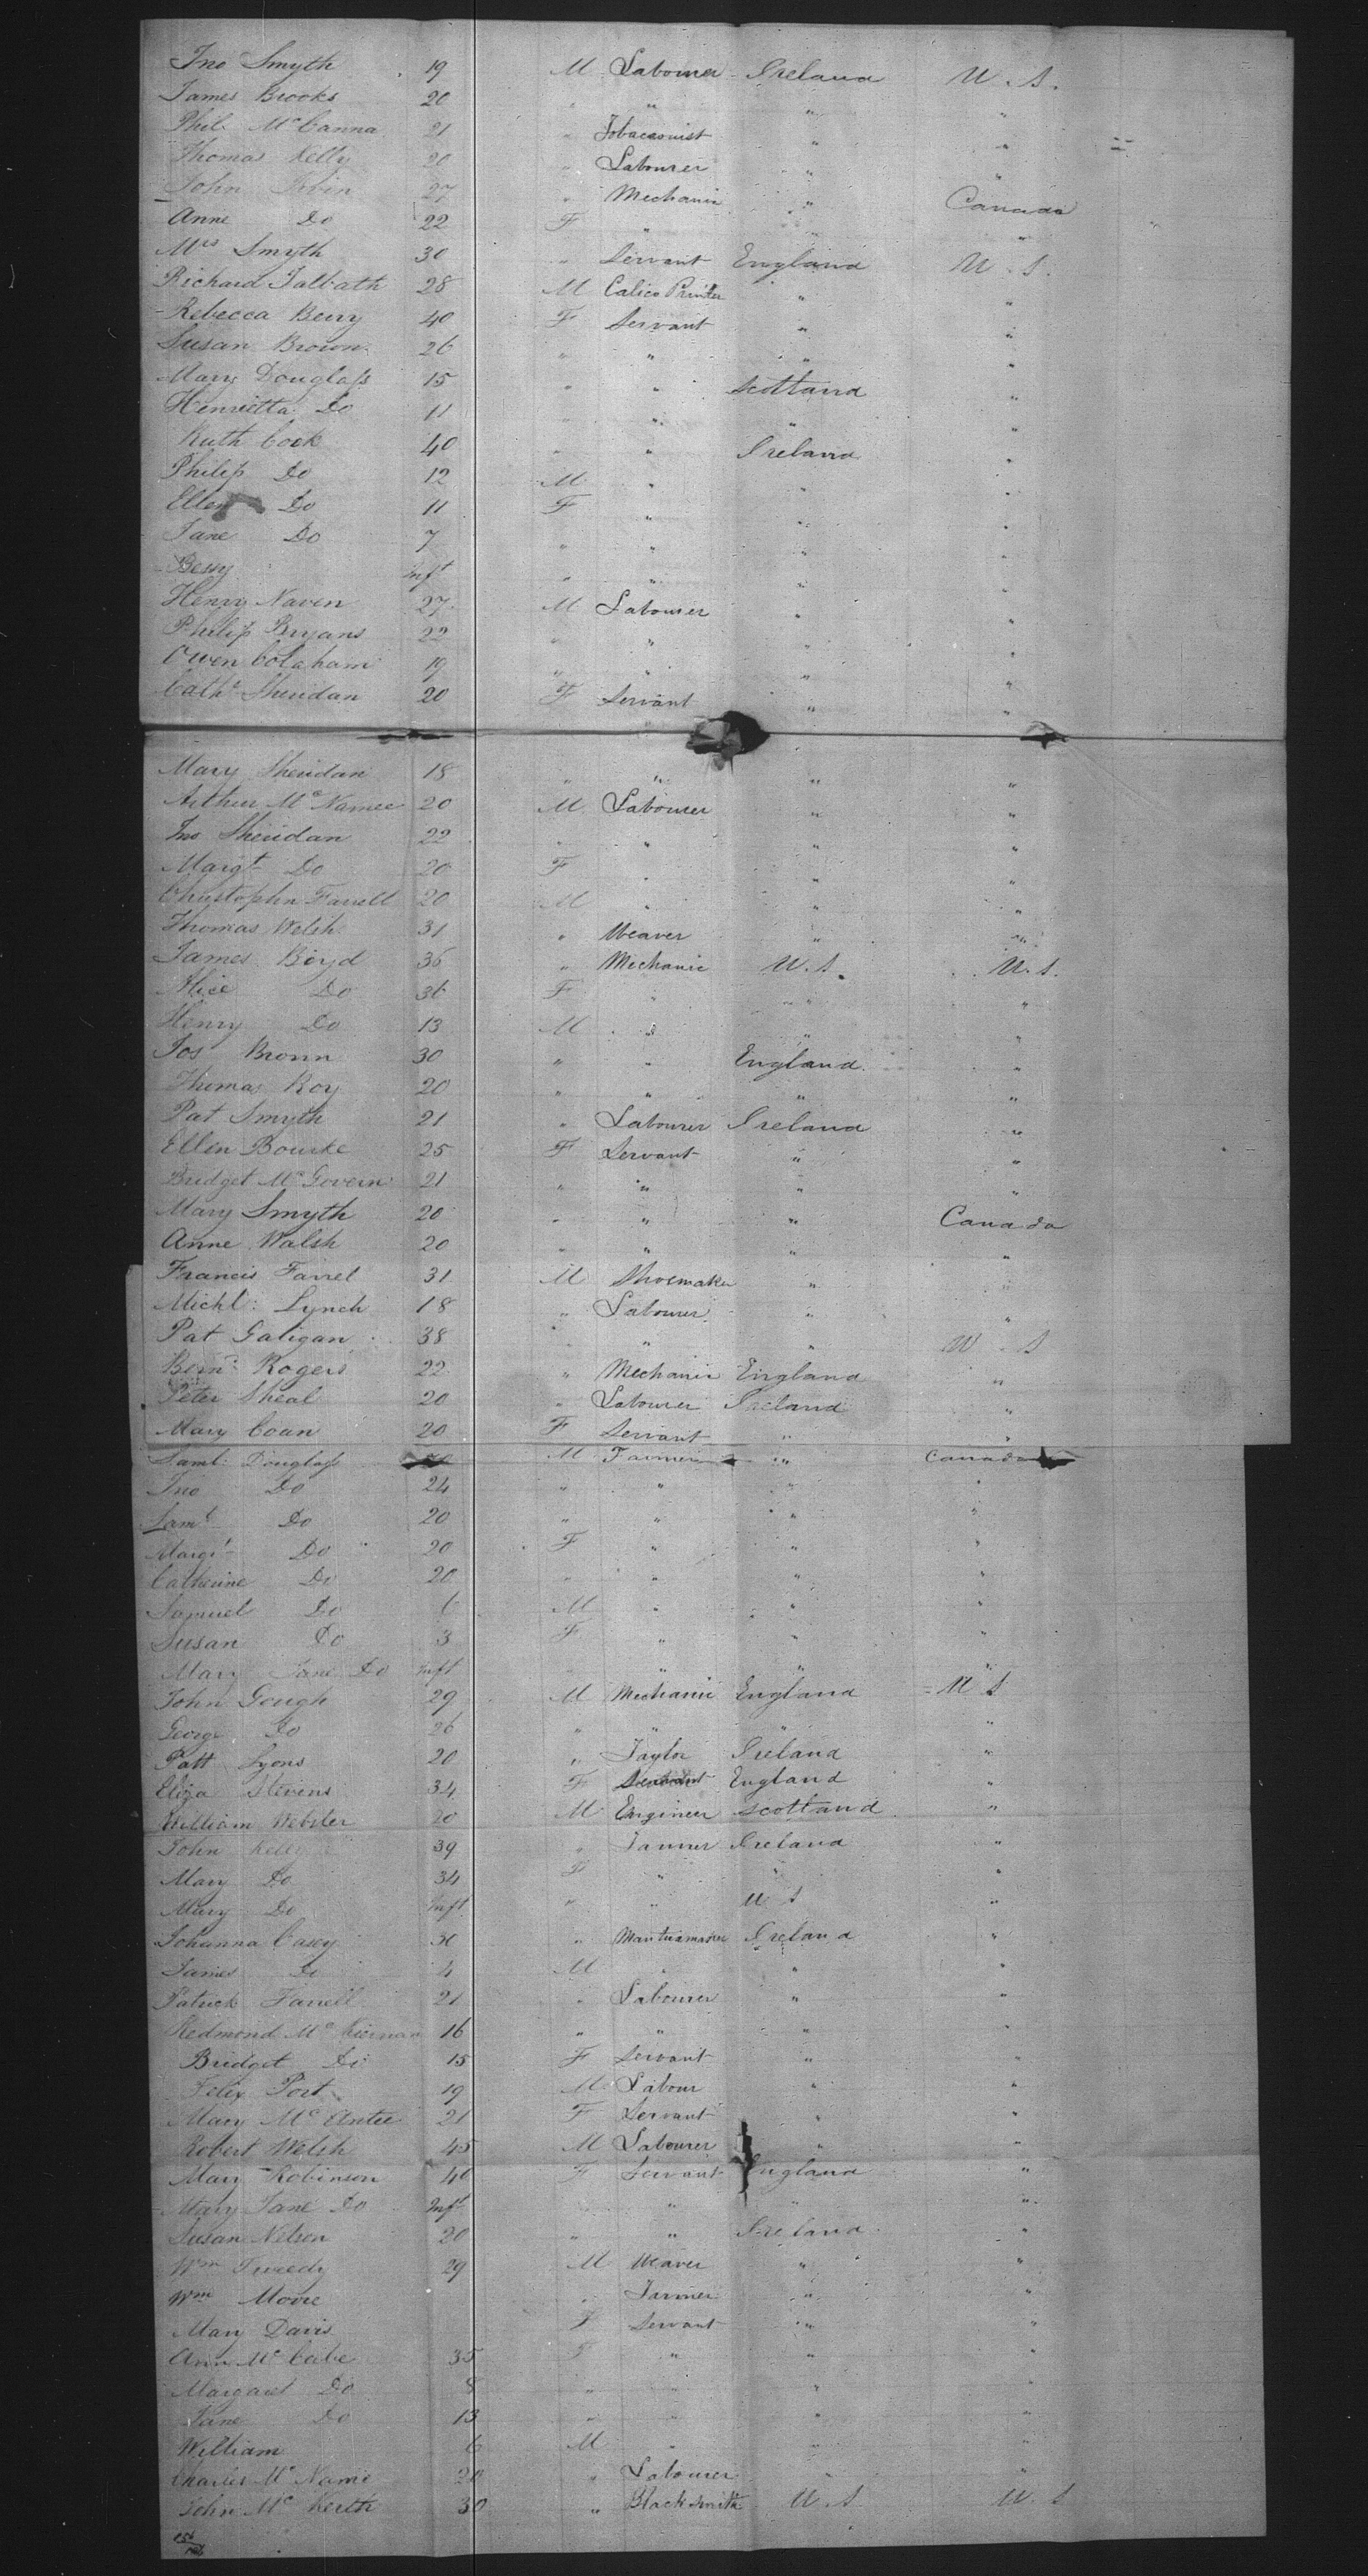 Jno Smyth 19 M Labourer Ireland U.S.
James Brooks 20 " " " "
Phil. McCanna 21 " Tobacconist " "
Thomas Kelly 20 " Labourer " "
John Irvin 27 " Mechanic " Canada
Anne Do 22 F " " "
Mrs Smyth 30 " Servant England U.S.
Richard Talbath 28 M Calico Printer " "
Rebecca Berry 40 F Servant " "
Susan Brown 26 " " " "
Mary Douglass 15 " " Scotland "
Henrietta Do 11 " " " "
Ruth Cook 40 " " Ireland "
Philip Do 12 M " " "
Ellen Do 11 F " " "
Jane Do 7 " " " "
Bessy Inft " " " "
Henry Naven 27 M Labourer " "
Philip Bryans 22 " " " "
Owen Colaham 19 " " " "
Cathe Sheridan 20 F Servant " "
Mary Sheridan 18 " " " "
Arthur McNamee 20 M Labourer " "
Jno Sheridan 22 " " " "
Margt Do 20 F " " "
Christopher Farrell 20 M " " "
Thomas Welsh 31 " Weaver " "
James Boyd 36 " Mechanic U.S. U.S.
Alice Do 36 F " " "
Henry Do 13 M " " "
Jos Bronn 30 " " England "
Thomas Roy 20 " " " "
Pat Smyth 21 " Labourer Ireland "
Ellen Bourke 25 F Servant " "
Bridget McGovern 21 " " " "
Mary Smyth 20 " " " Canada
Anne Walsh 20 " " " "
Francis Farrel 31 M Shoemaker " "
Michl: Lynch 18 " Labourer " "
Pat Galigan 38 " " " U.S
Bernd Rogers 22 " Mechanic England "
Peter Sheal 20 " Labourer Ireland "
Mary Coan 20 F Servant " "
Saml: Douglass M Farmer " Canada
Jno Do 24 " " " "
Saml Do 20 " " " "
Margt Do 20 F " " "
Catherine Do 20 " " " "
Samuel Do 6 M " " "
Susan Do 3 F " " "
Mary Jane Do Inft " " " "
John Gough 29 M Mechanic England U S
George Do 26 " " " "
Patt Lyons 20 " Taylor Ireland "
Eliza Stevens 34 F Servant England "
William Webster 20 M Engineer Scotland "
John Kelly 39 " Tanner Ireland "
Mary Do 34 F " " "
Mary Do Inft " " U S "
Johanna Casey 30 " Mantuamaker Ireland "
James Do 4 M " " "
Patrick Farrell 21 " Labourer " "
Redmond McKiernan 16 " " " "
Bridget Do 15 F Servant " "
Felix Port 19 M Labour " "
Mary McAntee 21 F Servant " "
Robert Welsh 45 M Labourer " "
Mary Robinson 40 F Servant England "
Mary Jane Do Inft " " " "
Susan Nelson 20 " " Ireland "
Wm Tweedy 29 M Weaver " "
Wm Moore " Farmer " "
Mary Davis F Servant " "
Ann McCabe 35 F " " "
Margaret Do 8 " " " "
Jane Do 13 " " " "
William 6 M " " "
Charles McName 20 " Labourer " "
John McKerth 30 " Blacksmith U.S. U.S